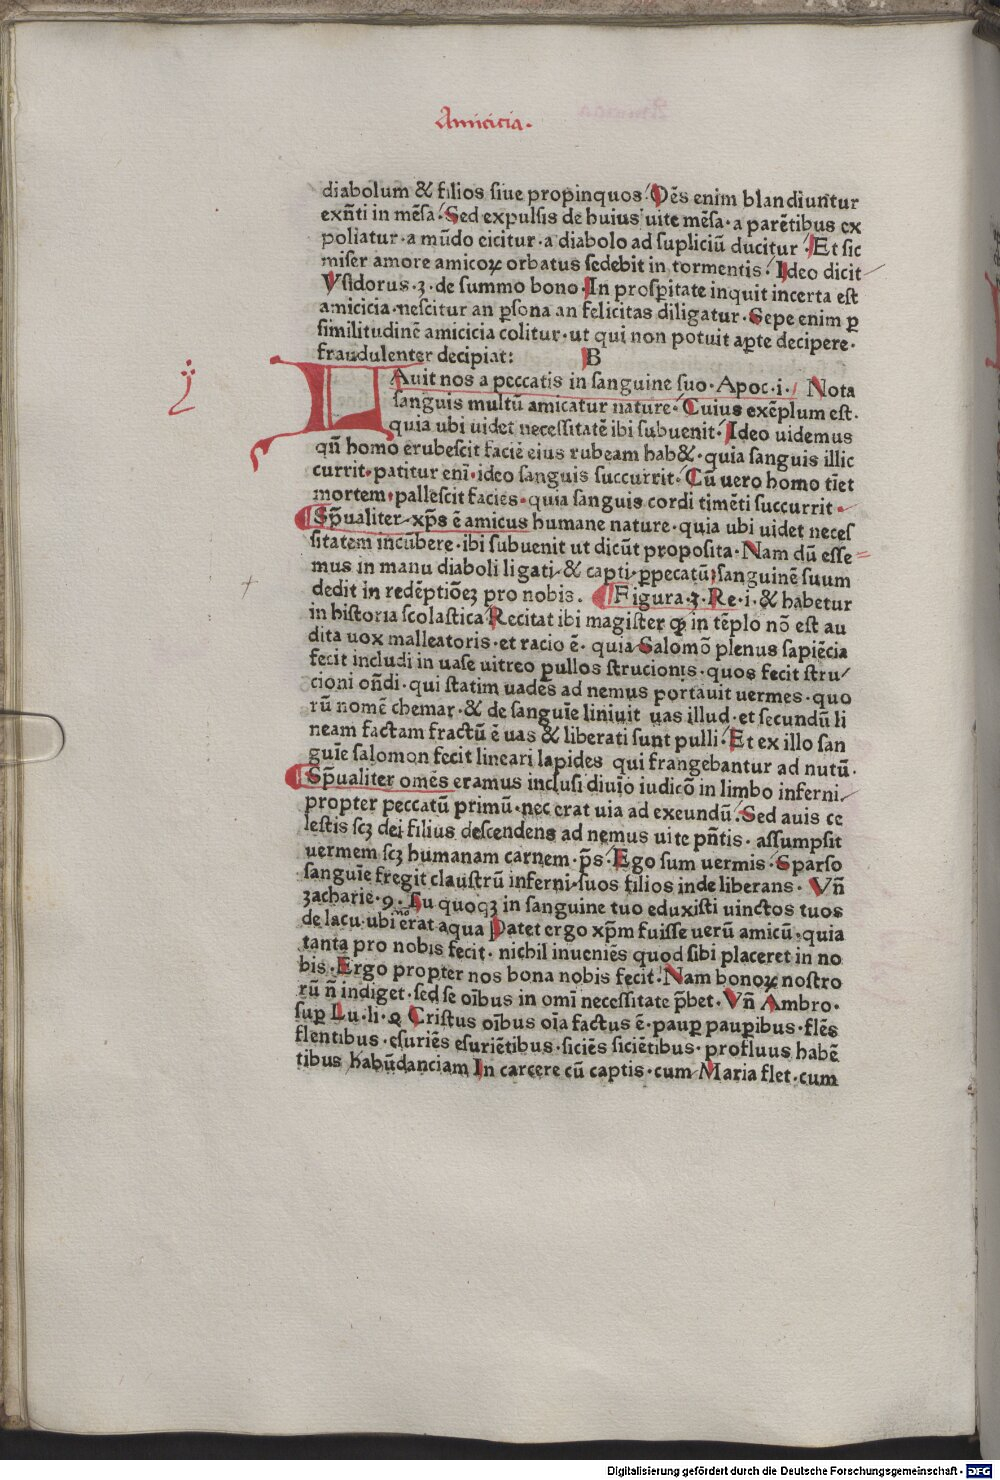 Amicicia.
diabolum & filios siue propinquos. Oēs enim blandiuntur
exn̄ti in mēsa. Sed expulsis de huius uite mēsa. a parētibus ex
poliatur. a mūdo eicitur. a diabolo ad supliciū ducitur. Et sic
miser amore amicoꝝ orbatus sedebit in tormentis. Ideo dicit
Ysidorus. 3. de summo bono. In prosꝑitate inquit incerta est
amicicia. nescitur an ꝑsona an felicitas diligatur. Sepe enim ꝑ
similitudinē amicicia colitur. ut qui non potuit aꝑte decipere.
fraudulenter decipiat:
B
LAuit nos a peccatis in sanguine suo. Apoc. i. Nota
sanguis multū amicatur nature. Cuius exēplum est.
quia ubi uidet necessitatē ibi subuenit. Ideo uidemus
qn̄ homo erubescit faciē eius rubeam hab&. quia sanguis illic
currit. patitur eni. ideo sanguis succurrit. Cū uero homo tīet
mortem. pallescit facies. quia sanguis cordi timēti succurrit.
Sp̄ualiter xp̄s ē amicus humane nature. quia ubi uidet neces
sitatem incūbere. ibi subuenit ut dicūt proposita. Nam dū esse
mus in manu diaboli ligati. & capti. ꝑpecatū sanguinē suum
dedit in redēptiōeꝫ pro nobis. Figura. 3. Re. i. & habetur
in historia scolastica Recitat ibi magister ꝙ in tēplo nō est au
dita uox malleatoris. et racio ē. quia Salomō plenus sapiēcia
fecit includi in uase uitreo pullos strucionis. quos fecit stru
cioni on̄di. qui statim uadēs ad nemus portauit uermes. quo
rū nomē chemar. & de sanguīe liniuit uas illud. et secundū li
neam factam fractū ē uas & liberati sunt pulli. Et ex illo san
guīe salomon fecit lineari lapides qui frangebantur ad nutū.
Sp̄ualiter omēs eramus inclusi diuīo iudicō in limbo inferni.
propter peccatū primū. nec erat uia ad exeundū. Sed auis ce
lestis scꝫ dei filius descendens ad nemus uite pn̄tis. assumpsit
uermem scꝫ humanam carnem. p̄s. Ego sum uermis. Sparso
sanguīe fregit claustrū inferni. suos filios inde liberans. Vn̄
zacharie. 9. Tu quoqꝫ in sanguine tuo eduxisti uinctos tuos
de lacu. ubi erat aqua Patet ergo xp̄m fuisse uerū amicū. quia
tanta pro nobis fecit. nichil inueniēs quod sibi placeret in no
bis. Ergo propter nos bona nobis fecit. Nam bonoꝝ nostro
rū n̄ indiget. sed se oībus in omī necessitate p̄bet. Vn̄ Ambro.
suꝑ Lu. li. 2 Cristus oībus oīa factus ē. pauꝑ pauꝑibus. flēs
flentibus. esuriēs esuriētibus. siciēs siciētibus. profluus habē
tibus habūdanciam In carcere cū captis. cum Maria flet. cum
Digitalisierung gefördert durch die Deutsche Forschungsgemeinschaft - DFG